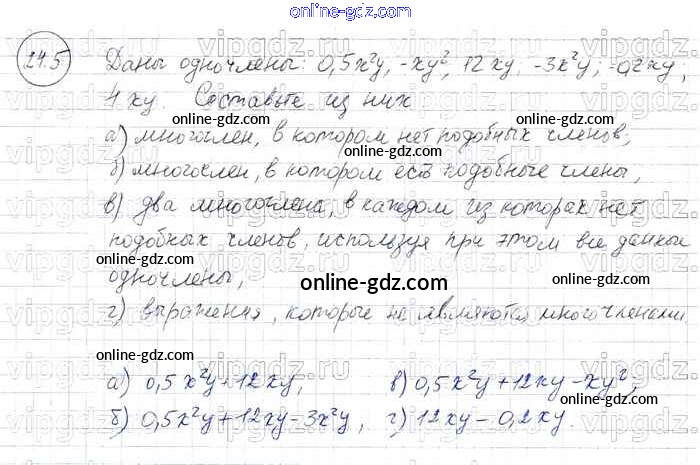 online-gdz.com
24.5 Даны одночлены: 0,5x²y, -xy², 12xy, -3x²y, -0,2xy,
1xy. Составьте из них
а) многочлен, в котором нет подобных членов;
online-gdz.com
б) многочлен, в котором есть подобные члены,
в) два многочлена, в каждом из которых нет
подобных членов, используя при этом все данные
одночлены,
online-gdz.com
г) выражения, которые не являются многочленами
online-gdz.com online-gdz.com
а) 0,5x²y+12xy; в) 0,5x²y+12xy-xy²;
б) 0,5x²y+12xy-3x²y, г) 12xy-0,2xy.
online-gdz.com